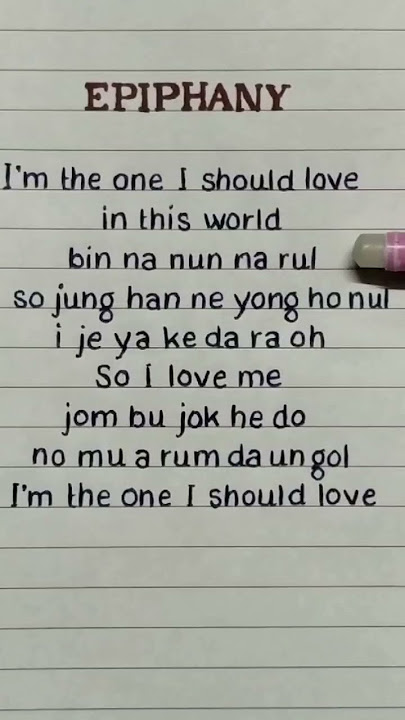 EPIPHANY
I'm the one I should love
in this world
bin na nun na rul
so jung han ne yong ho nul
i je ya ke da ra oh
So I love me
jom bu jok he do
no mu a rum da un gol
I'm the one I should love